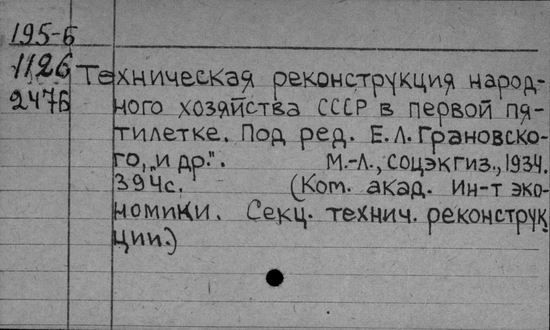 195-Б
1126
2476
Техническая реконструкция народ-
ного хозяйства СССР в первой пя-
тилетке. Под ред. Е.Л.Грановско-
го, „и др.". М.-Л., Соцэкгиз., 1934.
394с. (Ком. акад. Ин-т эко-
номики. Секц. технич. реконструк
ции.)